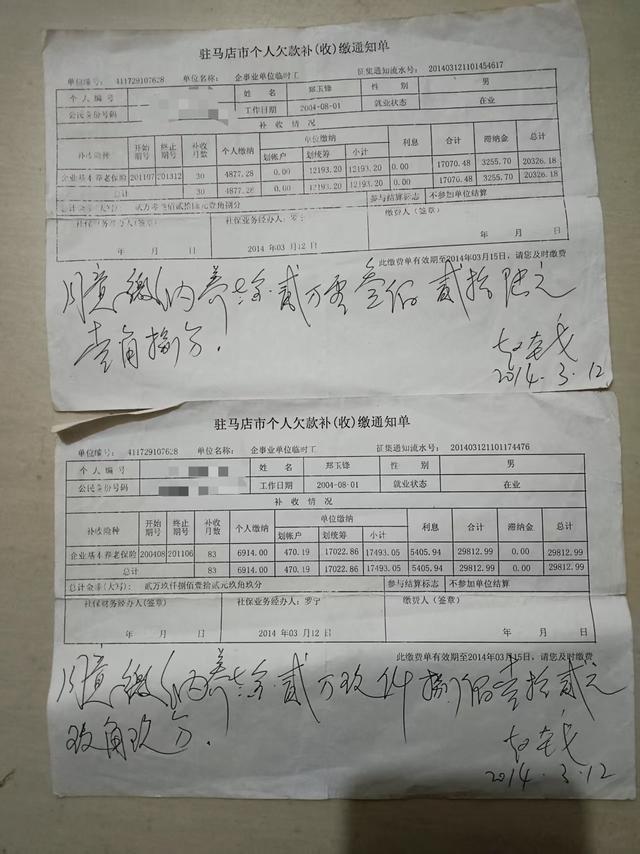 驻马店市个人欠款补(收)缴通知单
单位编号: 411729107628 单位名称: 企事业单位临时工 征集通知流水号: 201403121101454617
个人编号 姓名 郑玉锋 性别 男
公民身份号码 工作日期 2004-08-01 就业状态 在业
补收情况
补收险种 开始期号 终止期号 补收月数 个人缴纳 单位缴纳 利息 合计 滞纳金 总计
划帐户 划统筹 小计
企业基本养老保险 201107 201312 30 4877.28 0.00 12193.20 12193.20 0.00 17070.48 3255.70 20326.18
总计 30 4877.28 0.00 12193.20 12193.20 0.00 17070.48 3255.70 20326.18
总计金额(大写): 贰万零叁佰贰拾陆元壹角捌分 参与结算标志 不参加单位结算
社保财务经办人(签章) 社保业务经办人: 罗宁 缴费人(签章)
年 月 日 2014 年03 月12 日 年 月 日
此缴费单有效期至2014年03月15日, 请您及时缴费
同意缴纳养老金贰万零叁佰贰拾陆元
壹角捌分.
2014.3.12
驻马店市个人欠款补(收)缴通知单
单位编号: 411729107628 单位名称: 企事业单位临时工 征集通知流水号: 201403121101174476
个人编号 姓名 郑玉锋 性别 男
公民身份号码 工作日期 2004-08-01 就业状态 在业
补收情况
补收险种 开始期号 终止期号 补收月数 个人缴纳 单位缴纳 利息 合计 滞纳金 总计
划帐户 划统筹 小计
企业基本养老保险 200408 201106 83 6914.00 470.19 17022.86 17493.05 5405.94 29812.99 0.00 29812.99
总计 83 6914.00 470.19 17022.86 17493.05 5405.94 29812.99 0.00 29812.99
总计金额(大写): 贰万玖仟捌佰壹拾贰元玖角玖分 参与结算标志 不参加单位结算
社保财务经办人(签章) 社保业务经办人: 罗宁 缴费人(签章)
年 月 日 2014 年03 月12 日 年 月 日
此缴费单有效期至2014年03月15日, 请您及时缴费
同意缴纳养老金贰万玖仟捌佰壹拾贰元
玖角玖分.
2014.3.12